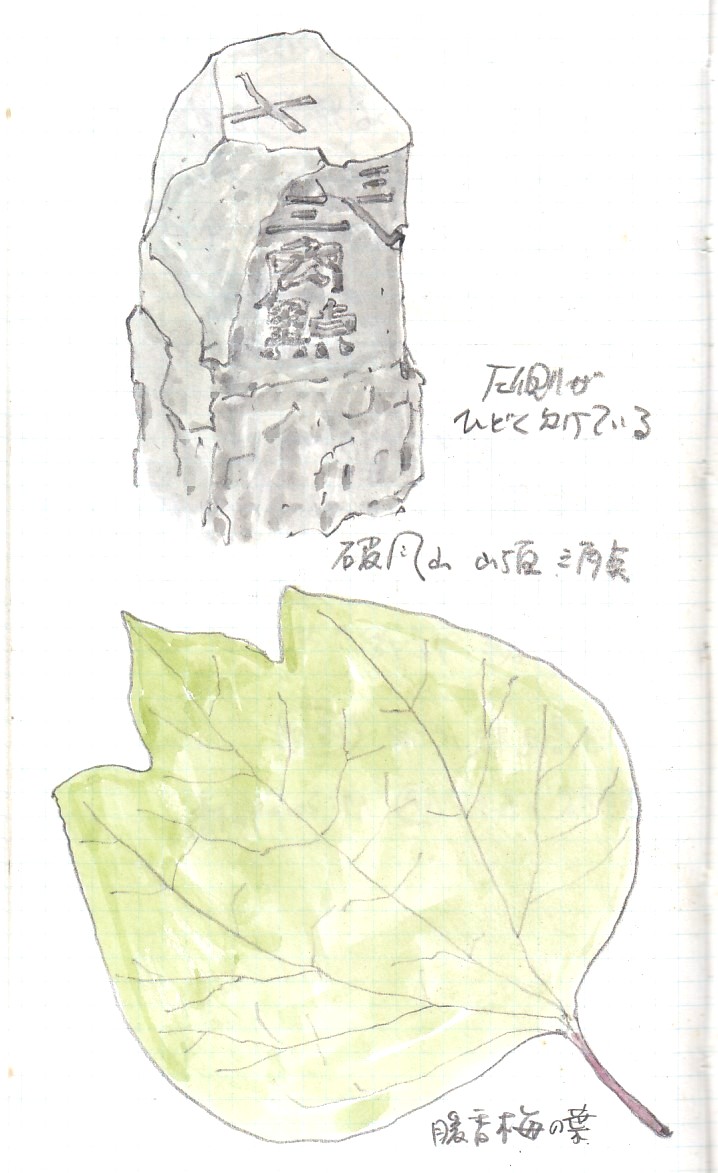 三
三角點
左側が
ひどく欠けている
破風山 山頂 三角点
暖香梅の葉